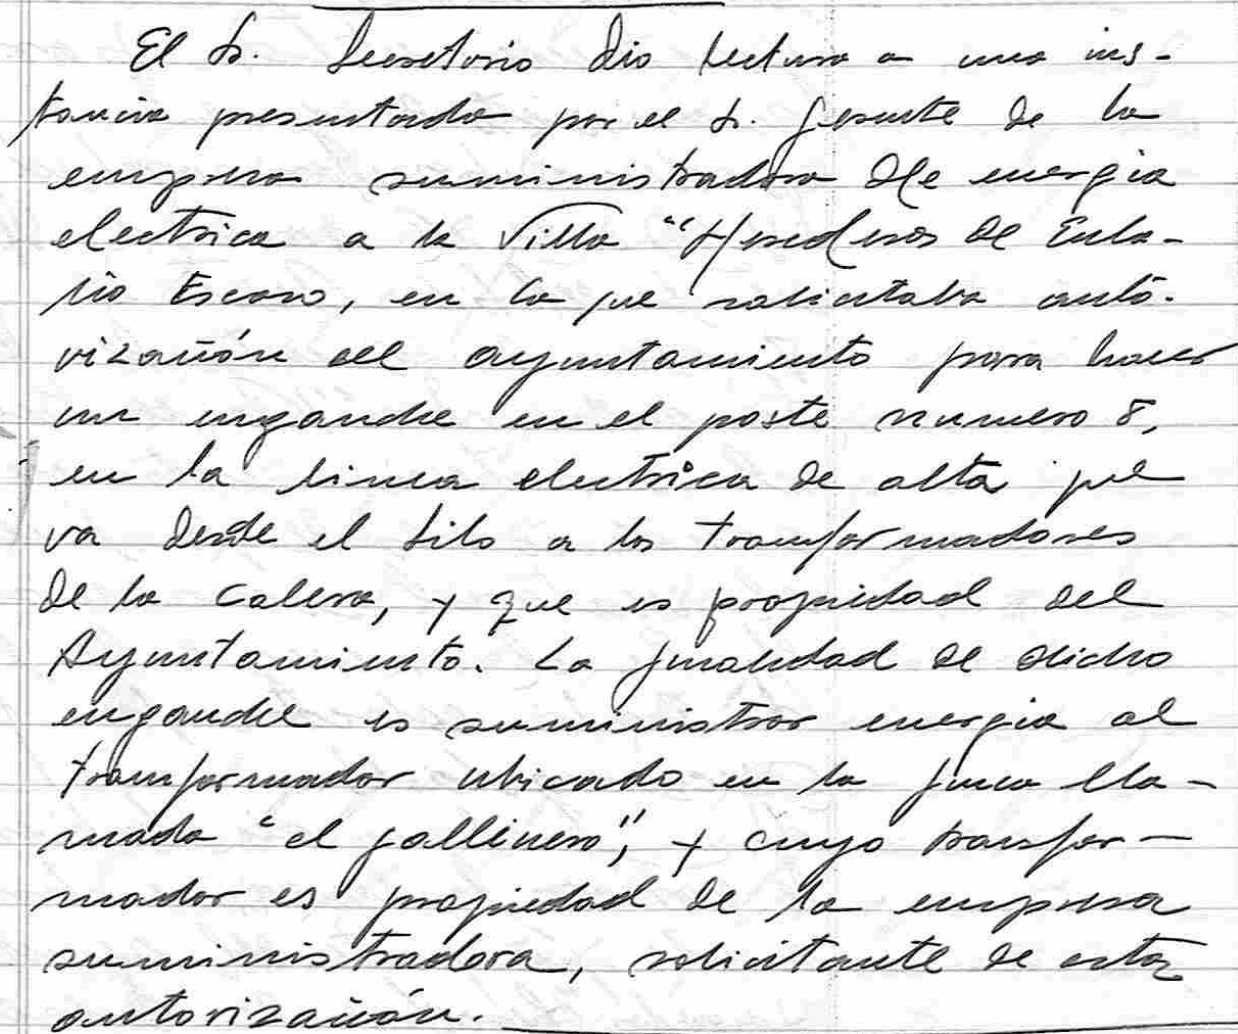 El Sr. Secretario dio lectura a una ins-
tancia presentada por el Sr. Gerente de la
empresa suministradora de energia
electrica a la Villa "Herederos de Eula-
lio Escaso, en la que solicitaba auto-
rización del ayuntamiento para hacer
un enganche en el poste numero 8,
en la linea electrica de alta que
va desde el Silo a los transformadores
de la Calera, y que es propiedad del
Ayuntamiento. La finalidad de dicho
enganche es suministrar energia al
transformador ubicado en la finca lla-
mada "el gallinero", y cuyo transfor-
mador es propiedad de la empresa
suministradora, solicitante de esta
autorización.